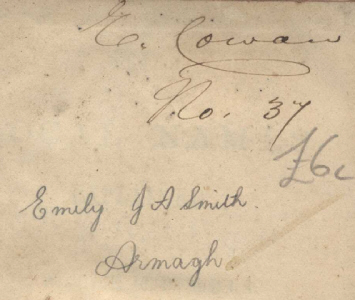 E. Cowan
No. 37
£6
Emily J A Smith
Armagh